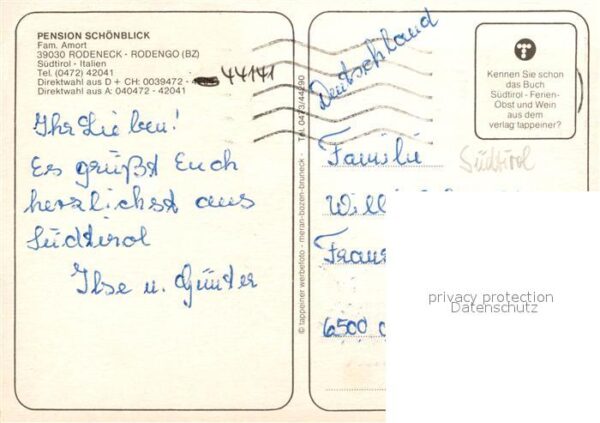 PENSION SCHÖNBLICK
Fam. Amort
39030 RODENECK - RODENGO (BZ)
Südtirol - Italien
Tel. (0472) 42041
Direktwahl aus D + CH: 0039472 - 44141
Direktwahl aus A: 040472 - 42041
Ihr Lieben!
Es grüßt Euch
herzlichst aus
Südtirol
Ilse u. Günter
© tappeiner werbefoto - meran-bozen-bruneck - Tel. 0473/44290
Deutschland
Kennen Sie schon
das Buch
Südtirol - Ferien-
Obst und Wein
aus dem
verlag tappeiner?
Südtirol
Familie
Willi
6500
privacy protection
Datenschutz